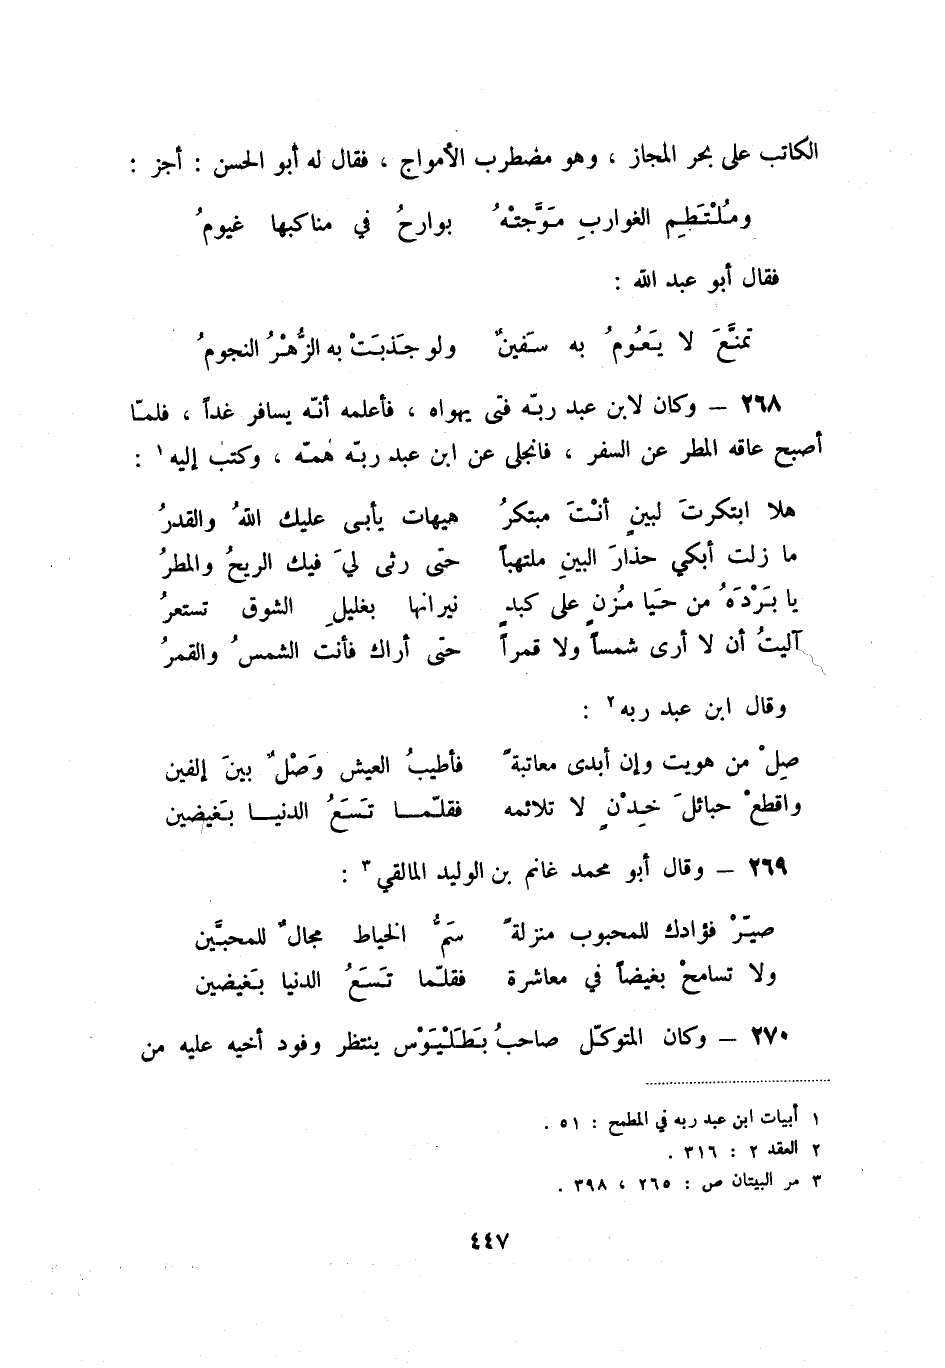 الكاتب على بحر المجاز ، وهو مضطرب الأمواج ، فقال له أبو الحسن : أجز :
ومُلْتَطِمِ الغواربِ مَوَّجتْهُ بوارحُ في مناكبها غيومُ
فقال أبو عبد الله :
تمنَّعَ لا يَعُومُ به سَفينٌ ولو جَذبَتْ به الزُّهْرُ النجومُ
٢٦٨ – وكان لابن عبد ربّه فتى يهواه ، فأعلمه أنّه يسافر غداً ، فلمّا
أصبح عاقه المطر عن السفر ، فانجلى عن ابن عبد ربّه همّه ، وكتب إليه ١ :
هلا ابتكرتَ لبينٍ أنْتَ مبتكرُ هيهات يأبى عليك اللهُ والقدرُ
ما زلت أبكي حذارَ البينِ ملتهباً حتّى رثى ليَ فيك الريحُ والمطرُ
يا بَرْدَهُ من حَيَا مُزنٍ على كبدٍ نيرانها بغليلِ الشوق تستعرُ
آليتُ أن لا أرى شمساً ولا قمراً حتّى أراك فأنت الشمسُ والقمرُ
وقال ابن عبد ربه ٢ :
صِلْ من هويت وإن أبدى معاتبةً فأطيبُ العيش وَصْلٌ بينَ إلفين
واقطعْ حبائلَ خِدْنٍ لا تلائمه فقلّمـا تَسَعُ الدنيـا بَغيضين
٢٦٩ – وقال أبو محمد غانم بن الوليد المالقي ٣ :
صيّرْ فؤادك للمحبوب منزلةً سَمُّ الخياط مجالٌ للمحبَّين
ولا تسامحْ بغيضاً في معاشرة فقلّما تَسَعُ الدنيا بَغيضين
٢٧٠ – وكان المتوكّل صاحبُ بَطَلْيَوْس ينتظر وفود أخيه عليه من
١ أبيات ابن عبد ربه في المطمح : ٥١ .
٢ العقد ٢ : ٣١٦ .
٣ مر البيتان ص : ٢٦٥ ، ٣٩٨ .
٤٤٧